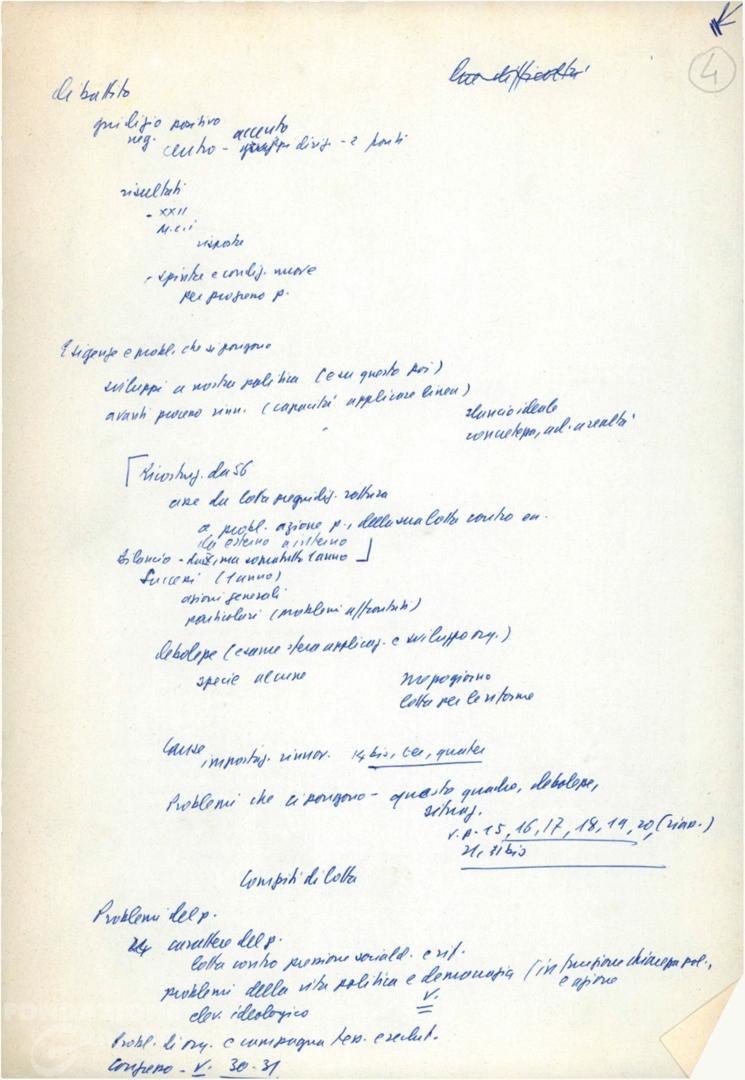 4
dibattito
giudizio positivo
neg. accento
centro - dirig. - 2 punti
risultati
- XXII
M.c.i
risposte
- spinte e condiz. nuove
per progresso p.
Esigenze e probl. che si pongono
sviluppi a nostra politica (e su questo poi)
avanti processo rinn. (capacità applicare linea)
slancio ideale
concretezza, ad. a realtà
Ricostruz. da 56
asse da lotta pregiudiz. rottura
a probl. azione p., della sua lotta contro
da esterno a interno
bilancio - soprattutto 1 anno
Successi (1 anno)
azioni generali
particolari (problemi affrontati)
debolezze (esame applicaz. e sviluppo org.)
specie alcune
Mezzogiorno
lotta per le riforme
Cause
impostaz. rinnov. 14 bis, ter, quater
Problemi che ci pongono - questo quadro, debolezze,
situaz.
v. p. 15, 16, 17, 18, 19, 20, (riass.)
21, 21 bis
Compiti di lotta
Problemi del p.
carattere del p.
lotta contro pressione sociald. e rif.
problemi della vita politica e democrazia (in funzione chiarezza pol.,
e azione
elev. ideologico V.
Probl. di org. e campagna tess. e reclut.
Congresso - V. 30-31